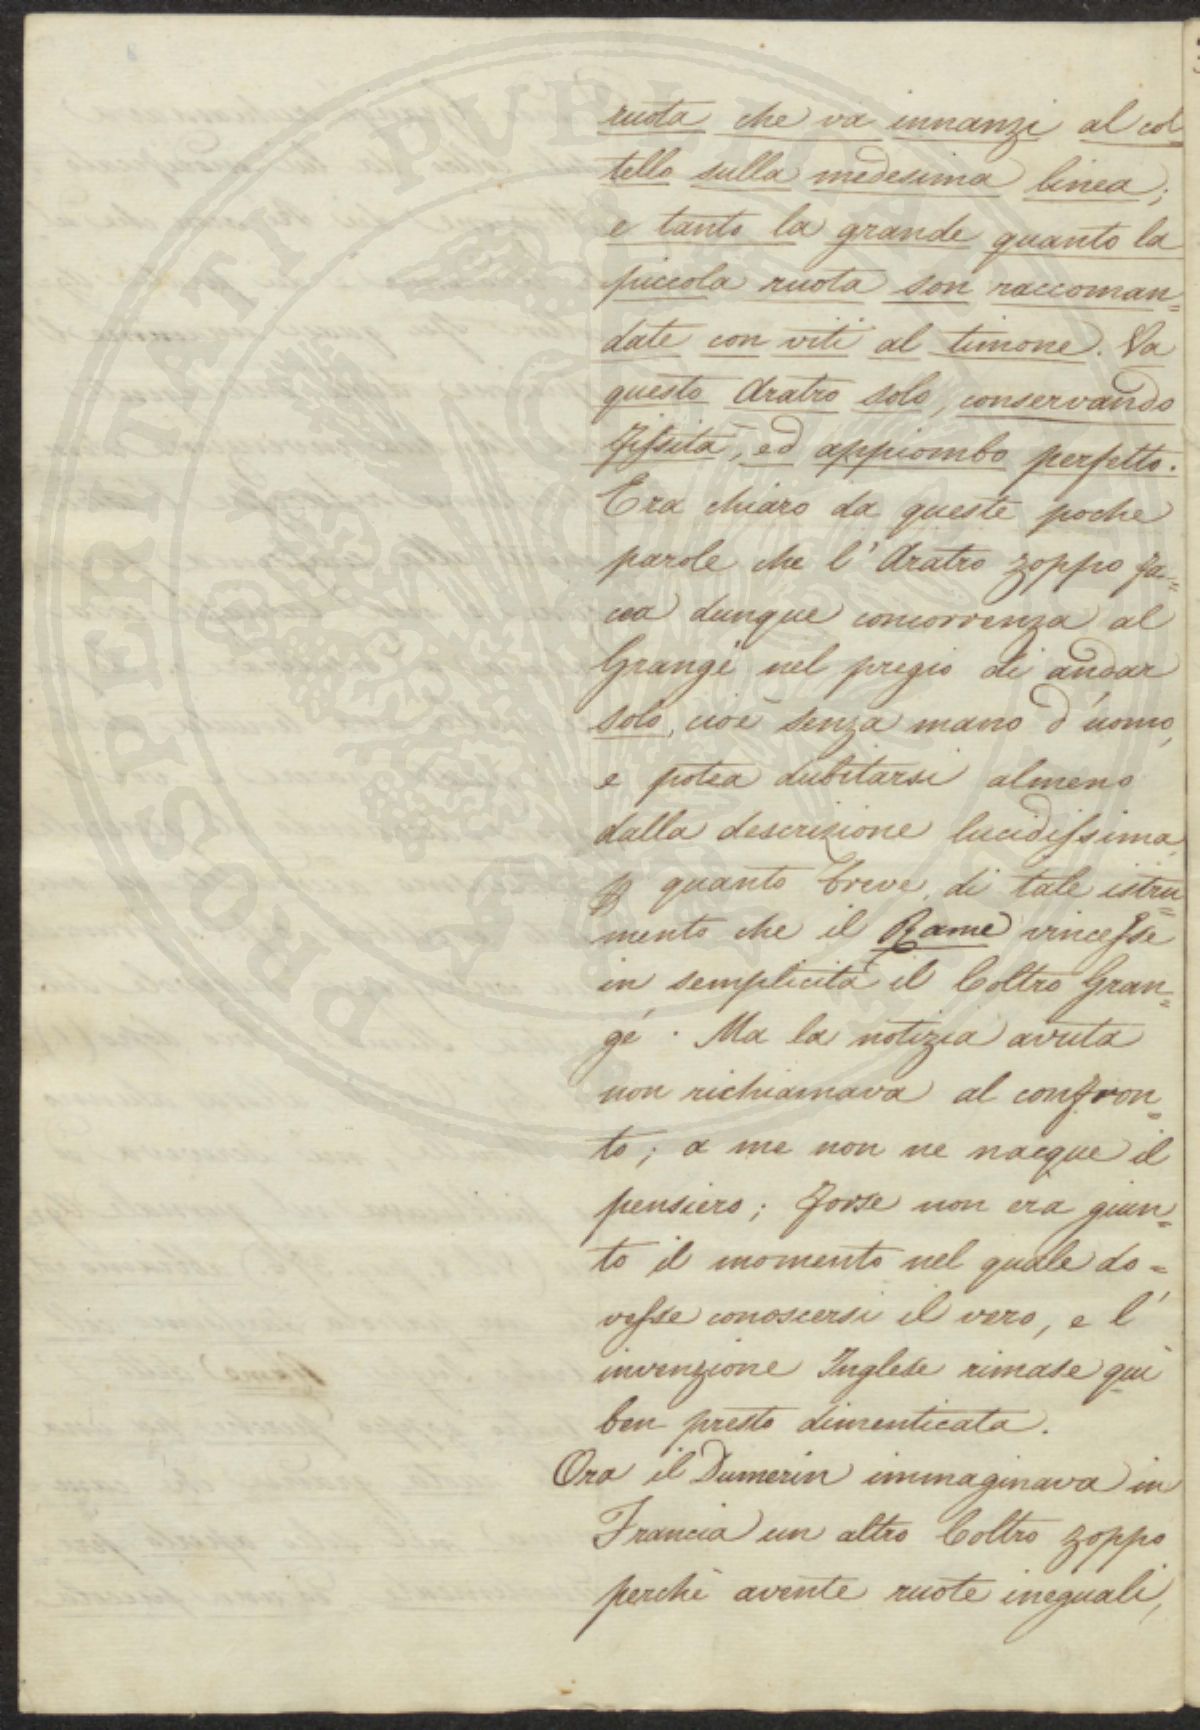 ruota che va innanzi al col
tello sulla medesima linea;
e tanto la grande quanto la
piccola ruota son raccoman=
date con viti al timone. Va
questo Aratro solo, conservando
fissità, ed appiombo perfetto.
Era chiaro da queste poche
parole che l'Aratro zoppo fa=
cea dunque concorrenza al
Grangé nel pregio di andar
solo, cioè senza mano d'uomo,
e potea dubitarsi almeno
dalla descrizione lucidissima,
quanto breve, di tale istru=
mento che il Rame vincesse
in semplicità il Coltro Gran=
gé. Ma la notizia avuta
non richiamava al confron=
to; a me non ne nacque il
pensiero; forse non era giun=
to il momento nel quale do=
vesse conoscersi il vero, e l'
invenzione Inglese rimase qui
ben presto dimenticata.
Ora il Dumerin immaginava in
Francia un altro Coltro zoppo
perchè avente ruote ineguali,
PROSPERITATI PUBLICAE